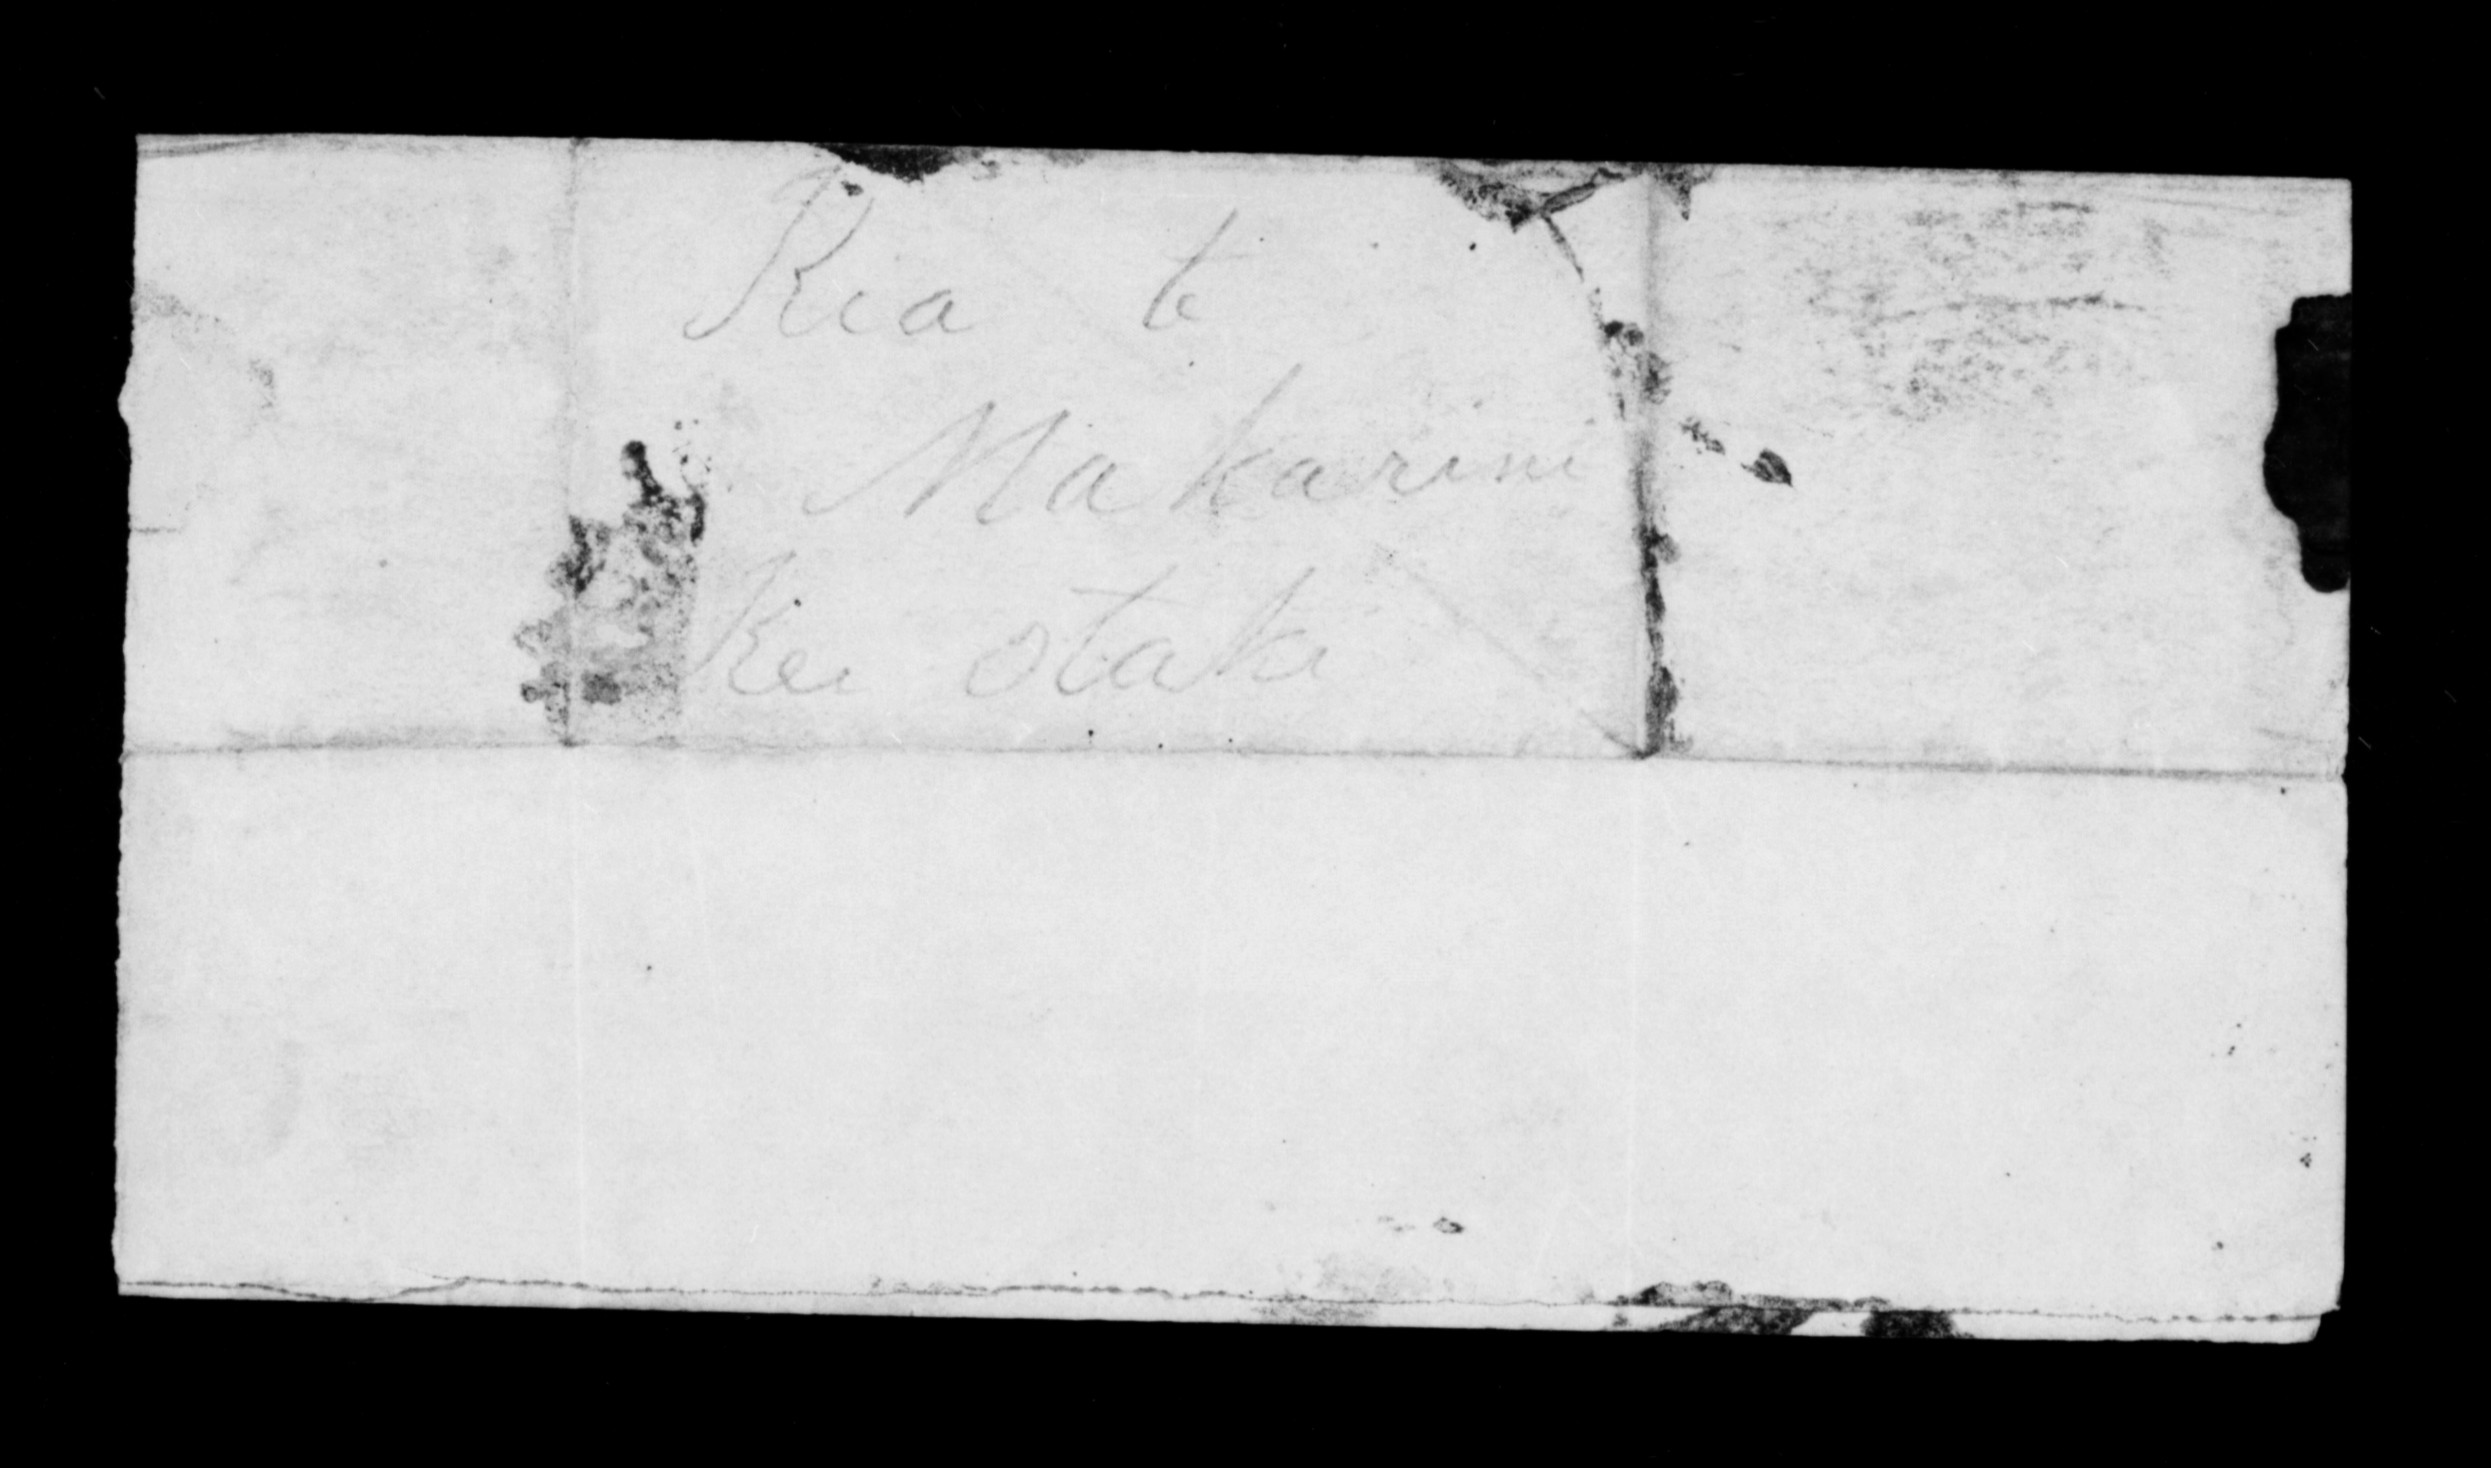 Kia te
Makarini
Kei otaki